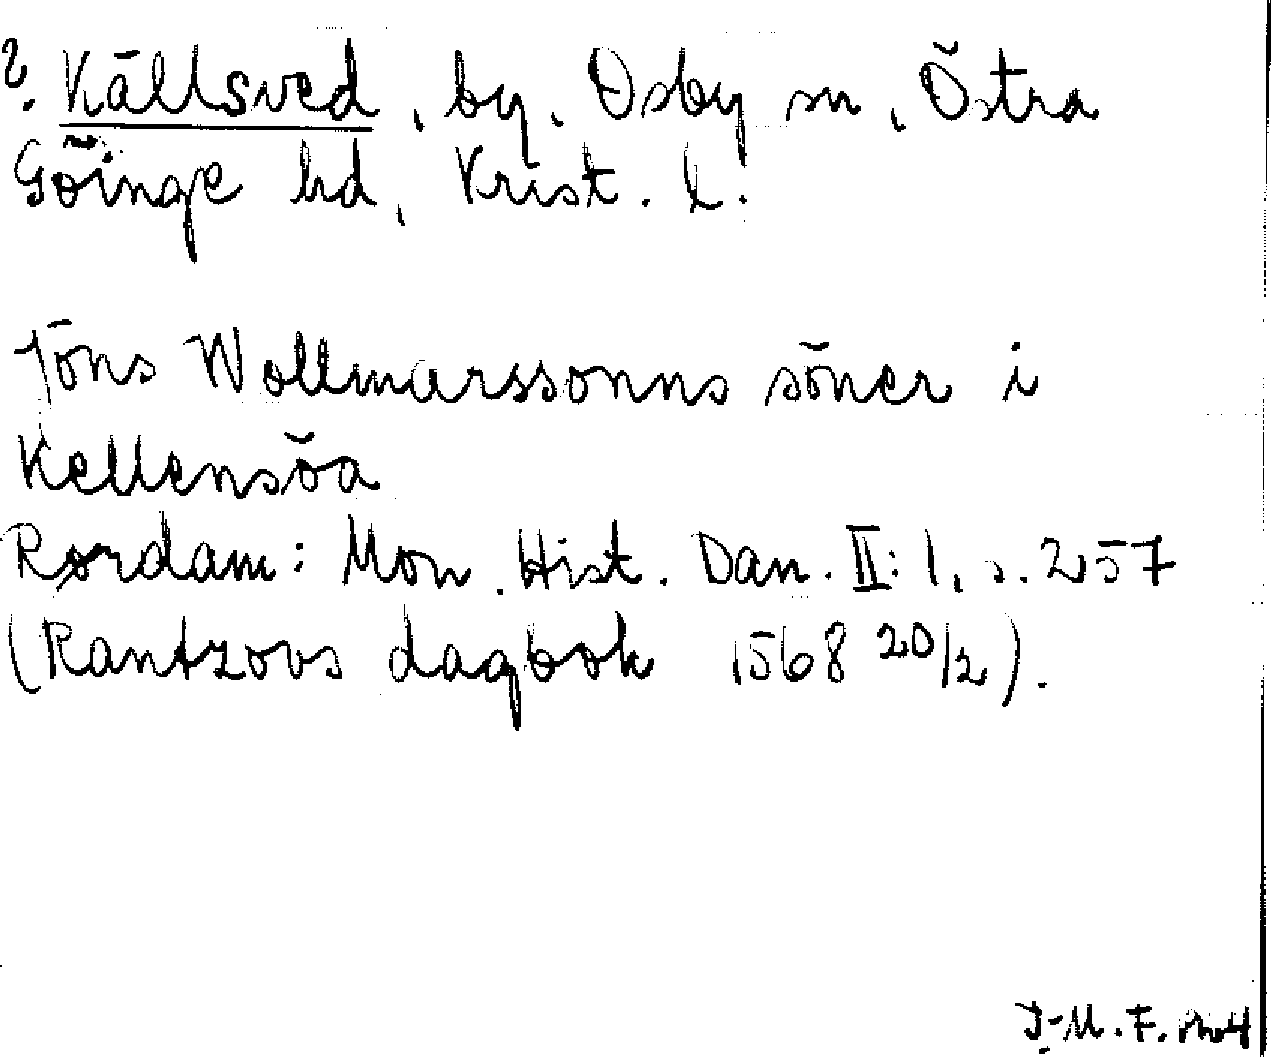 ?. Källsved, by, Osby sn, Östra
Göinge hd, Krist. l.
Jöns Wollmarssonns söner i
Kellensöa
Rørdam: Mon. Hist. Dan. II:1, s. 257
(Rantzovs dagbok 1568 20/2).
J-M. F.